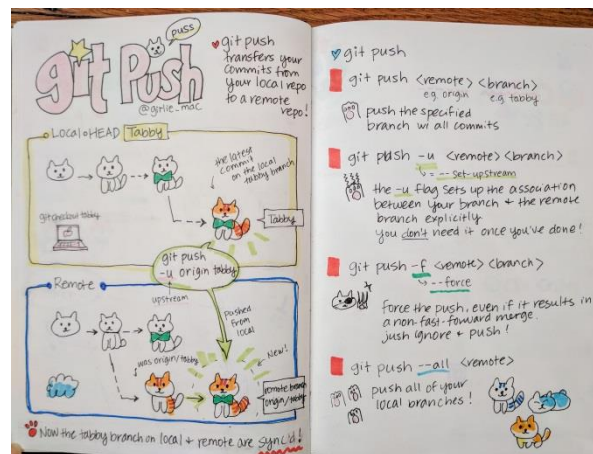 git Push
puss
@girlie_mac
git push
transfers your
commits from
your local repo
to a remote
repo!
Local HEAD Tabby
the latest
commit
on the local
tabby branch
git checkout tabby
Tabby
git push
-u origin tabby
Remote
upstream
pushed
from
local
was origin/tabby
New!
remote branch
origin/tabby
Now the tabby branch on local + remote are sync'd!
git push
git push <remote> <branch>
e.g. origin e.g. tabby
push the specified
branch w/ all commits
git push -u <remote> <branch>
= --set-upstream
the -u flag sets up the association
between your branch + the remote
branch explicitly
you don't need it once you've done!
git push -f <remote> <branch>
--force
force the push, even if it results in
a non-fast-forward merge.
just ignore + push!
git push --all <remote>
push all of your
local branches!